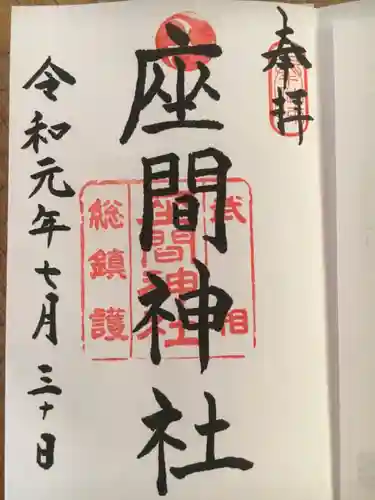 奉拝
座間神社
武相
座間神社
総鎮護
令和元年七月三十日